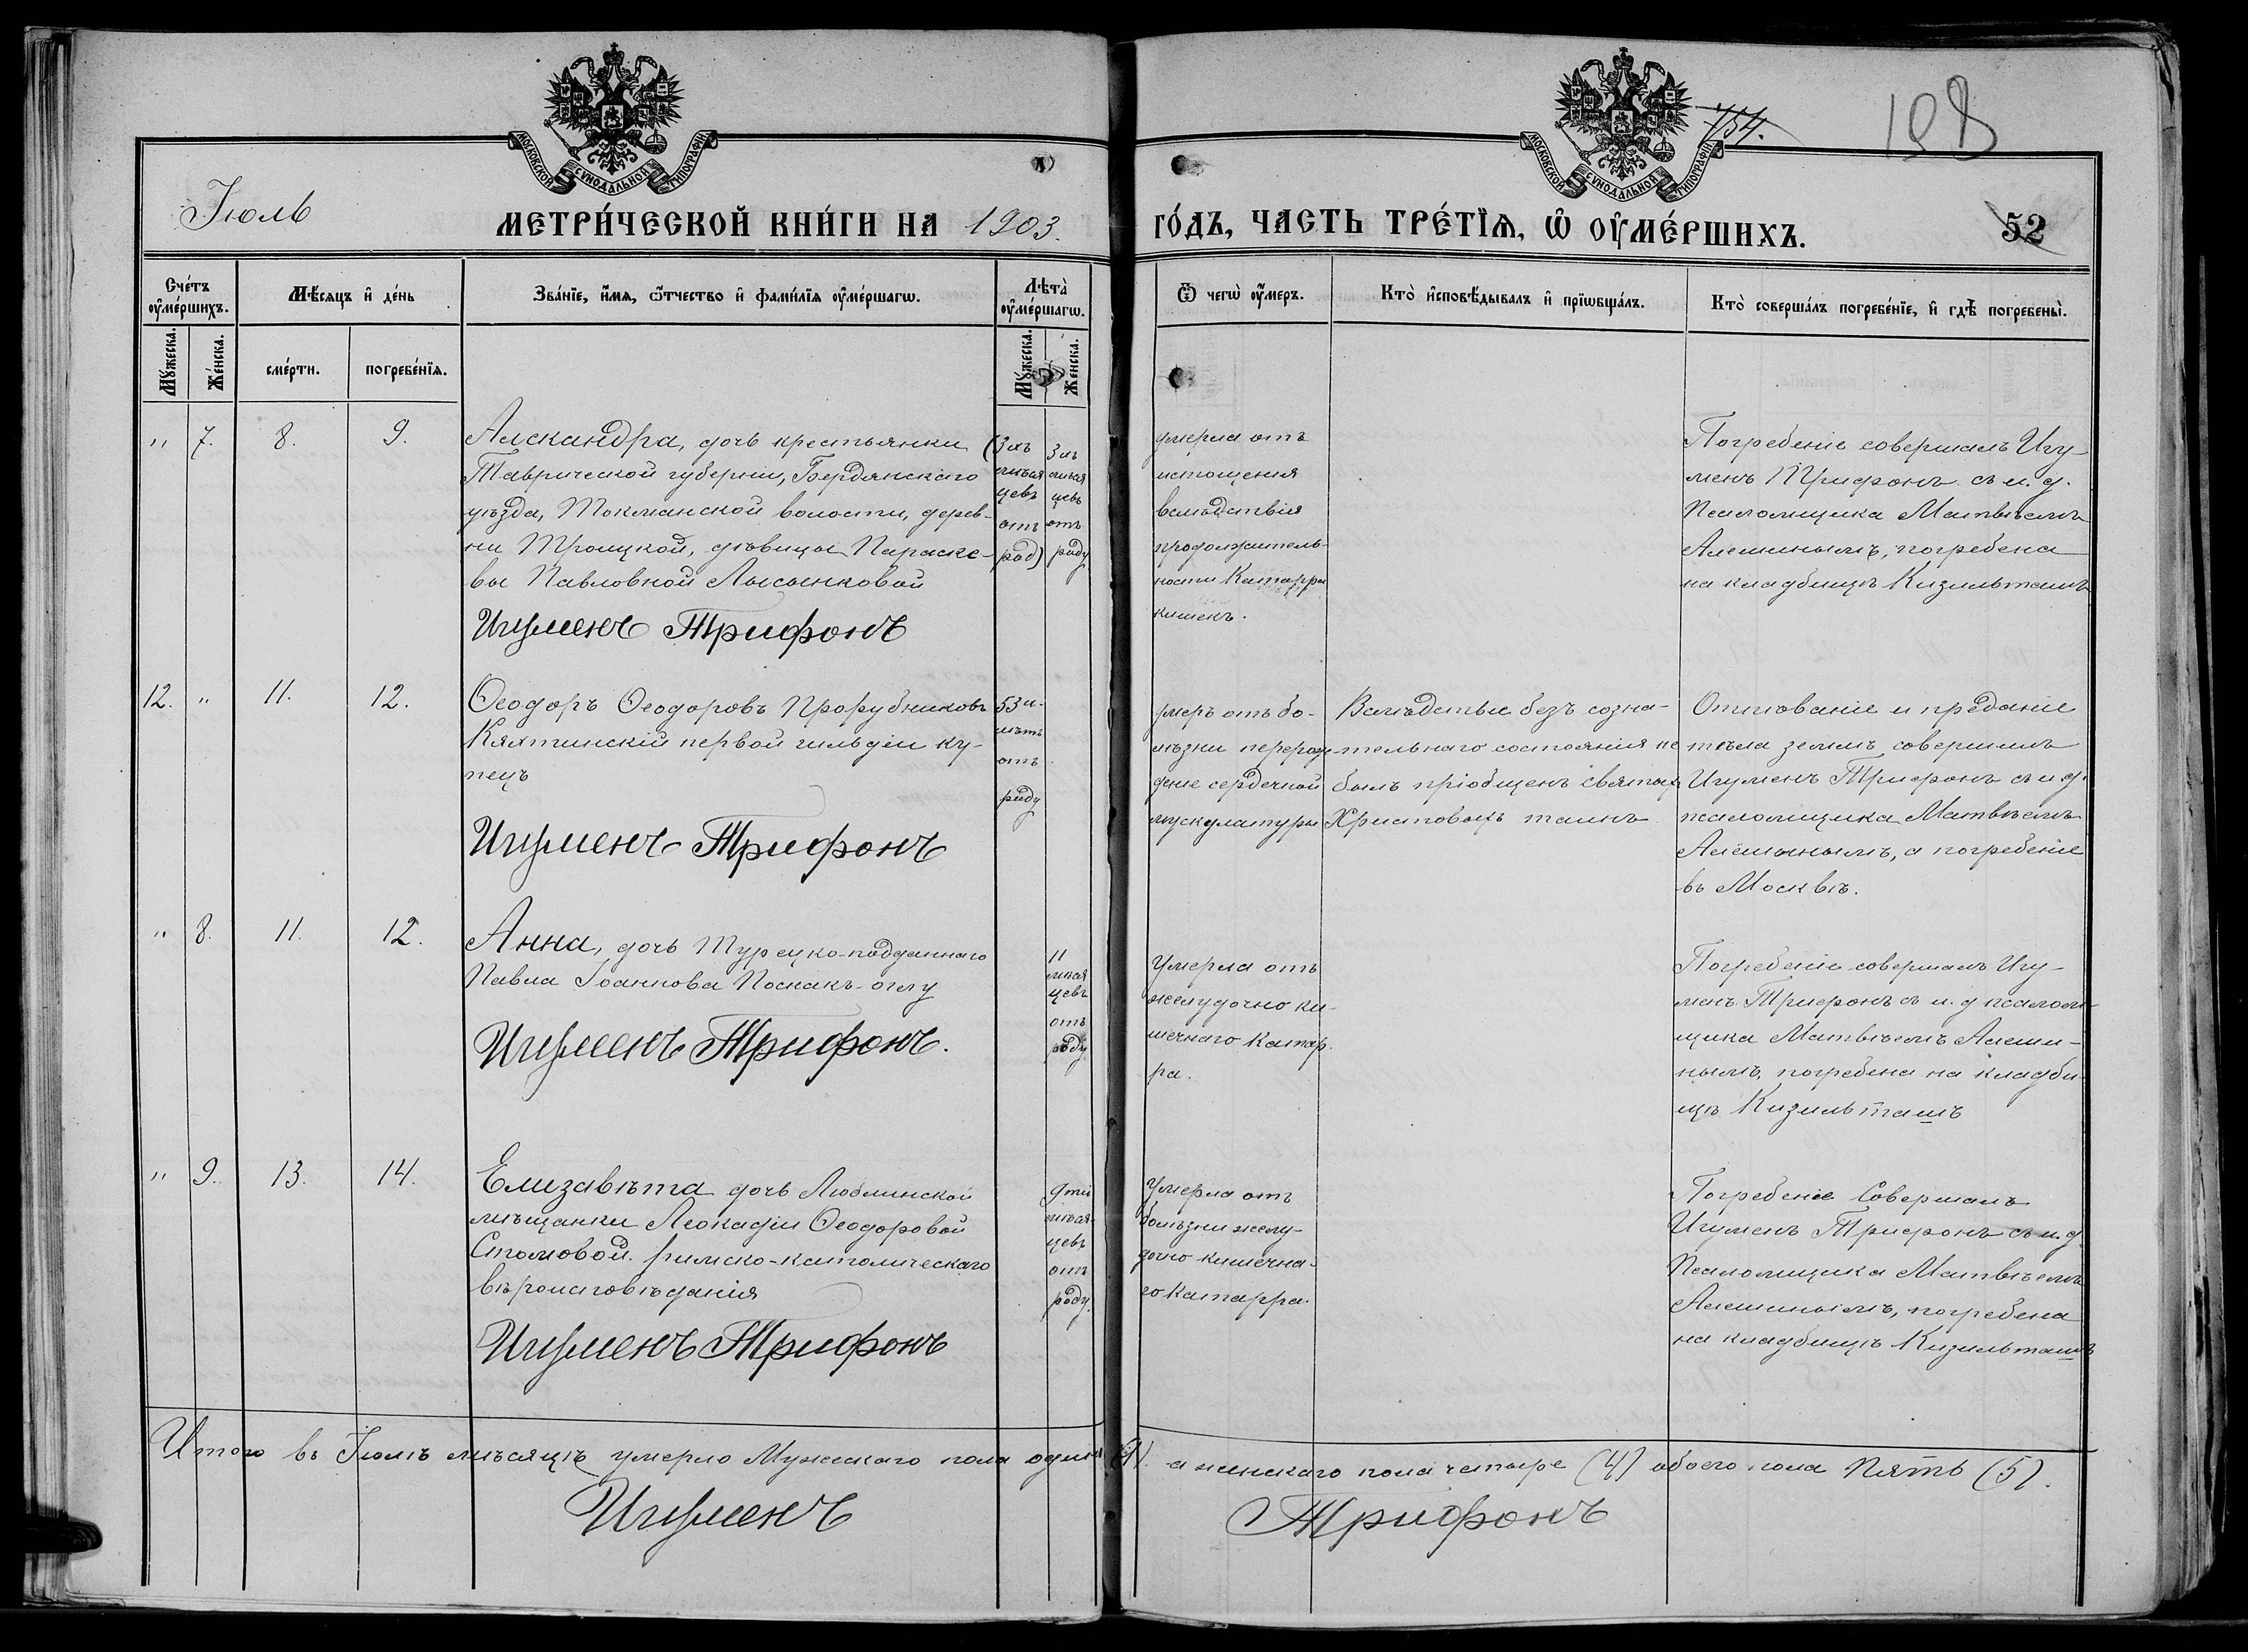 МОСКОВСКОЙ СѴНОДАЛЬНОЙ ТИПОГРАФІИ
МОСКОВСКОЙ СѴНОДАЛЬНОЙ ТИПОГРАФІИ
754.
198
Іюль
МЕТРИ́ЧЕСКОЙ КНИ́ГИ НА 1903.
ГО́ДЪ, ЧАСТЬ ТРЕ́ТІѦ, Ѡ҆ ОУ҆МЕ́РШИХЪ.
52
Сче́тъ оу҆ме́ршихъ.
Мѣ́сяцъ и҆ де́нь
Зва́нїе, и҆́мя, ѻ҆́тчество и҆ фами́лїя оу҆ме́ршагѡ.
Лѣта̀ оу҆ме́ршагѡ.
Ѿ чегѡ̀ оу҆́меръ.
Кто̀ и҆сповѣ́дывалъ и҆ прїѡбща́лъ.
Кто̀ соверша́лъ погребе́нїе, и҆ гдѣ̀ погребены̀.
Мꙋ́жеска.
Же́нска.
сме́рти.
погребе́нїя.
Мꙋ́жеска.
Же́нска.
" 7. 8. 9.
Алскандра, дочь крестьянки
Таврической губерніи, Бердянскаго
уѣзда, Токманской волости, дерев-
ни Троицкой, дѣвицы Параске-
вы Павловной Лысынковой
Игуменъ Трифонъ
(3хъ
мѣся
цевъ
отъ
род)
3хъ
мѣся
цевъ
отъ
роду
умерла отъ
истощенія
вслѣдствія
продолжитель-
ности Катарра
кишекъ.
Погребеніе совершалъ Игу-
менъ Трифонъ съ и. д.
Псаломщика Матвѣемъ
Алешинымъ, погребена
на кладбищѣ Кизильташъ
12. " 11. 12.
Ѳеодоръ Ѳеодоровъ Прорубниковъ
Кяхтинскій первой гильдіи ку-
пецъ
Игуменъ Трифонъ
53 и-
лѣтъ
отъ
роду
умеръ отъ бо-
лѣзни перерож-
деніе сердечной
мускулатуры
Вслѣдствіе безъ созна-
тельнаго состоянія не
былъ пріобщенъ святыхъ
Христовыхъ таинъ
Отпѣваніе и преданіе
тѣла землѣ совершилъ
Игуменъ Трифонъ съ и. д.
псаломщика Матвѣемъ
Алешинымъ, а погребеніе
въ Москвѣ.
" 8. 11. 12.
Анна, дочь Турецко-подданнаго
Павла Іоаннова Поскакъ-оглу
Игуменъ Трифонъ.
11
мѣся
цевъ
отъ
роду
Умерла отъ
желудочно ки-
шечнаго Катар-
ра.
Погребеніе совершалъ Игу-
менъ Трифонъ съ и. д псалом-
щика Матвѣемъ Алеши-
нымъ, погребена на кладби-
щѣ Кизильташъ
" 9. 13. 14.
Елизавѣта дочь Люблинской
мѣщанки Леокадіи Ѳеодоровой
Столовой. римско-католическаго
вѣроисповѣданія
Игуменъ Трифонъ
9ти
мѣся-
цевъ
отъ
роду.
Умерла отъ
болѣзни желу-
дочно-кишечна-
го Катарра.
Погребеніе Совершалъ
Игуменъ Трифонъ съ и. д.
Псаломщика Матвѣемъ
Алешинымъ, погребена
на кладбищѣ Кизильташъ
Итого въ Іюлѣ мѣсяцѣ умерло Мужескаго пола одинъ (1). а женскаго пола четыре (4) обоего пола Пять (5).
Игуменъ Трифонъ